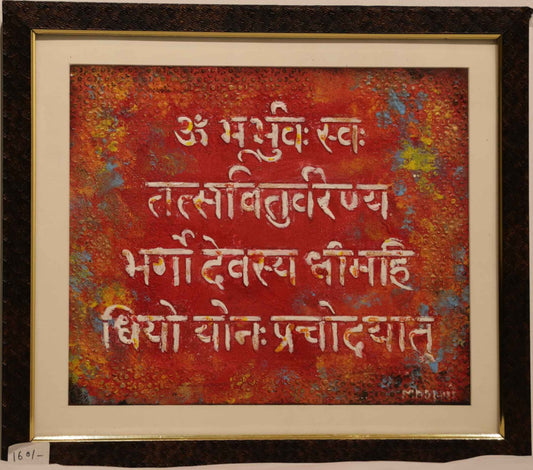 ॐ भर्भुवः स्वः
तत्सवितुर्वरेण्य
भर्गो देवस्य धीमहि
धियो योनः प्रचोदयात्
160/-